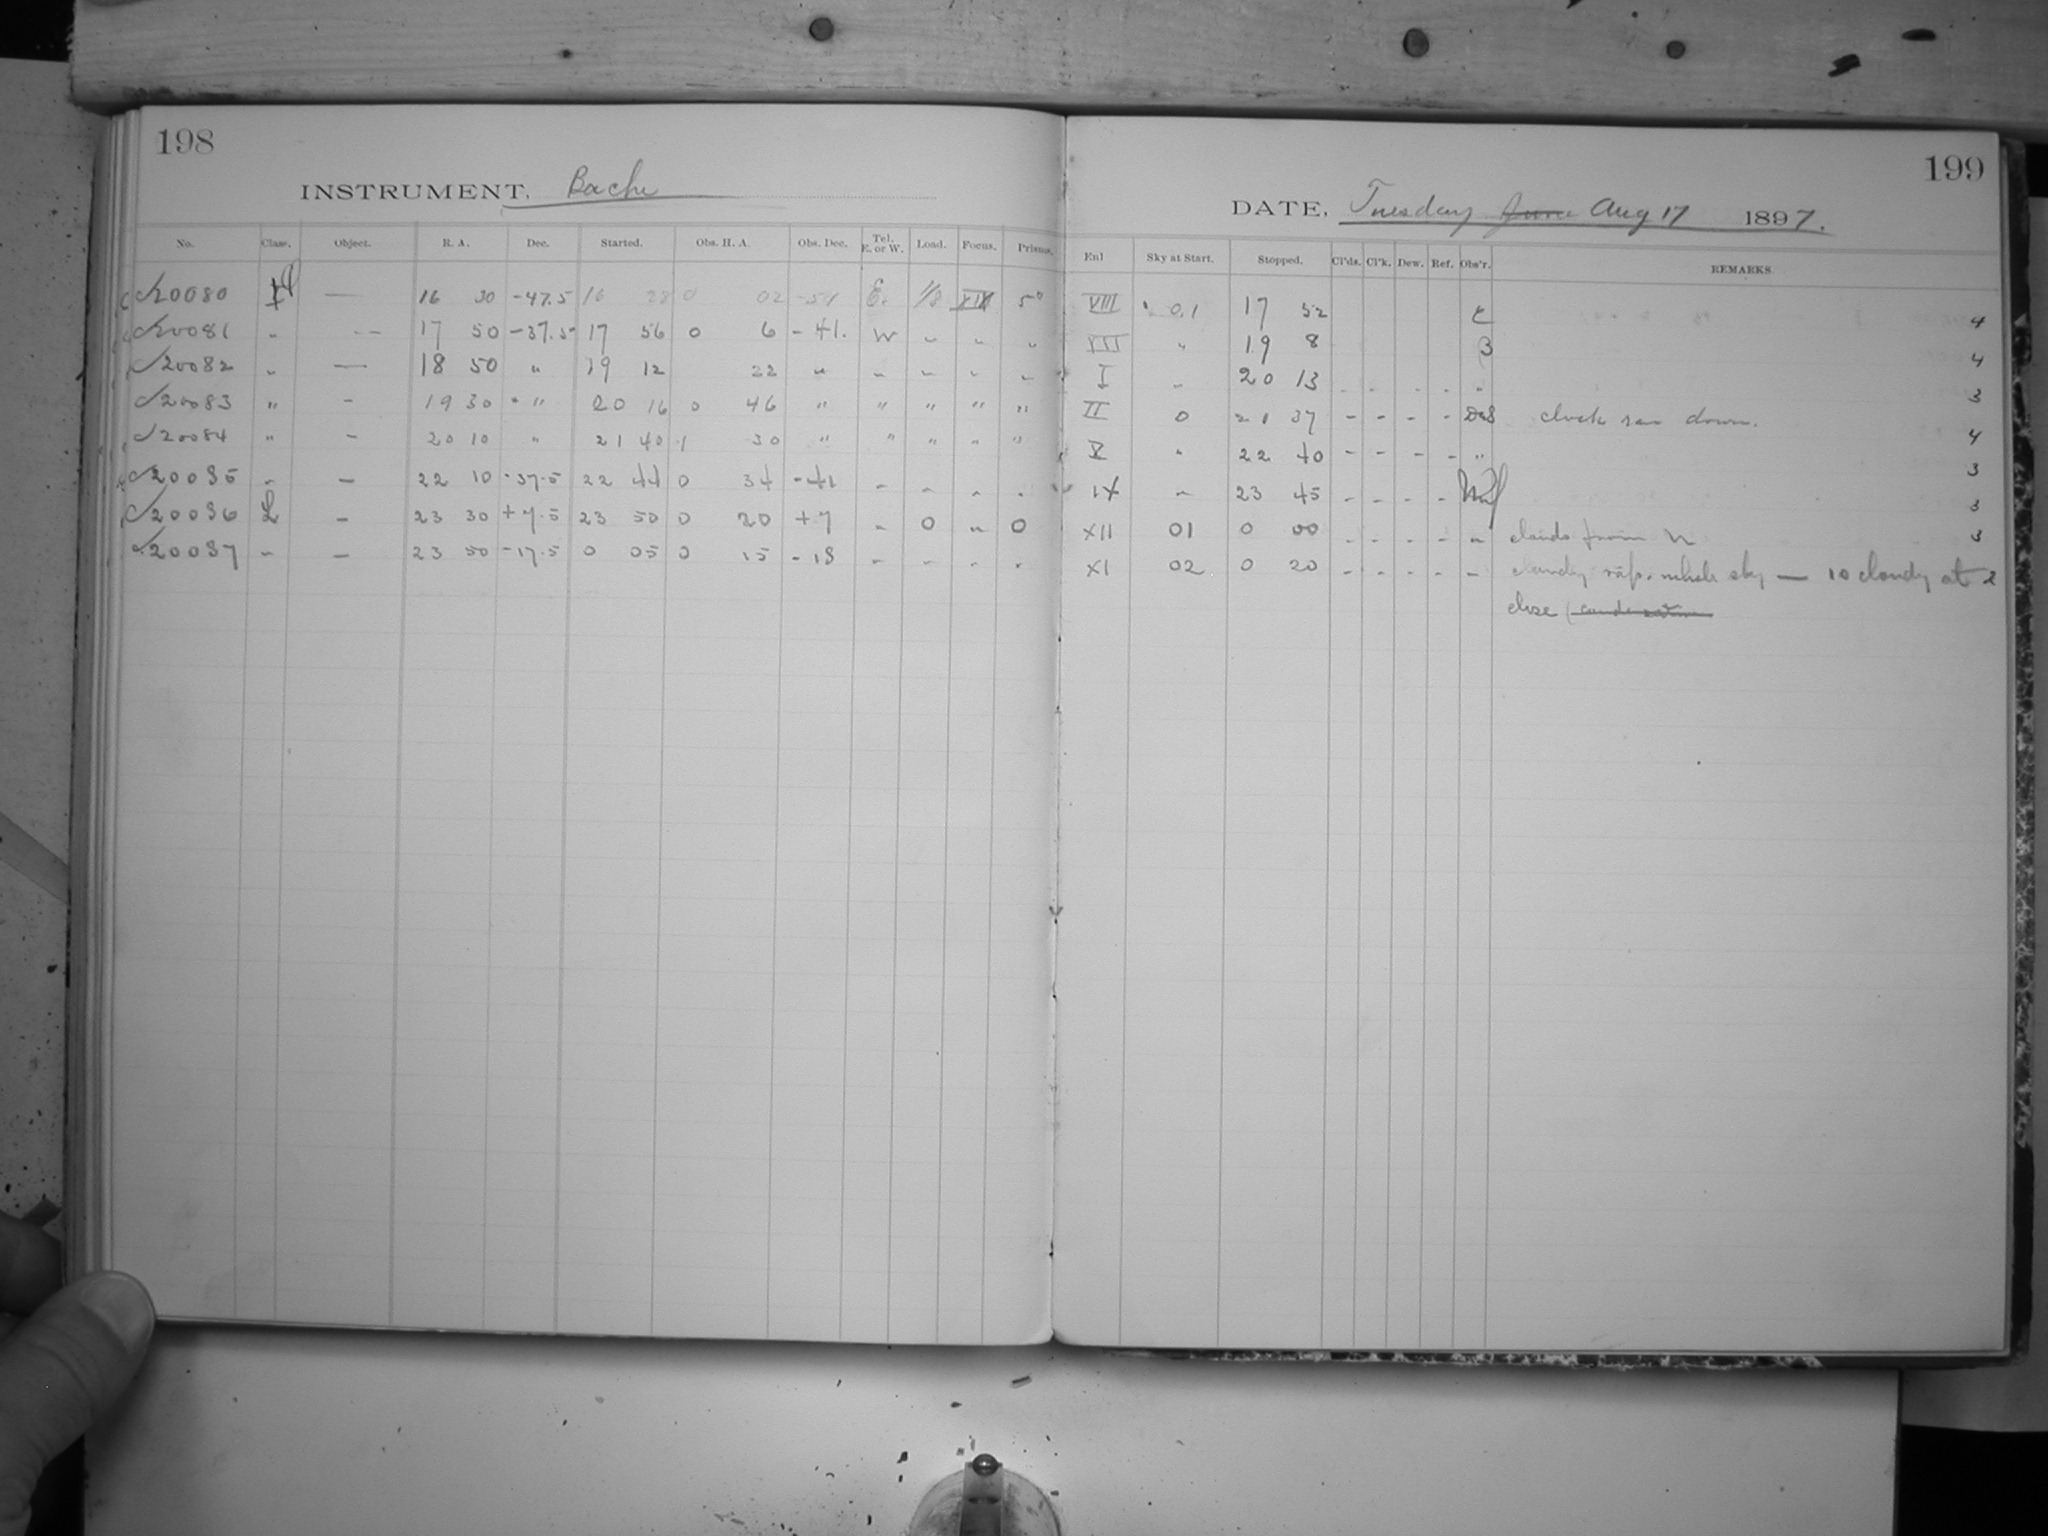 198
INSTRUMENT, Bache
No. Class. Object. R. A. Dec. Started. Obs. H. A. Obs. Dec. Tel. E. or W. Load. Focus. Prisms.
20080 — 16 30 -47.5 16 28 0 02 -51 E. 1/8 XIX 5°
20081 " — 17 50 -37.5 17 56 0 6 -41. W " " "
20082 " — 18 50 " 19 12 22 " " " " "
20083 " - 19 30 " 20 16 0 46 " " " " "
20084 " - 20 10 " 21 40 1 30 " " " " "
20085 " - 22 10 -37.5 22 44 0 34 -41 " " " "
20086 L - 23 30 +7.5 23 50 0 20 +7 " 0 " 0
20087 " - 23 50 -17.5 0 05 0 15 -18 " " " "
199
DATE, Tuesday June Aug 17 1897.
Enl Sky at Start. Stopped. Cl'ds. Cl'k. Dew. Ref. Obs'r. REMARKS
VIII 0.1 17 52 C 4
" 19 8 B 4
I " 20 13 - - - - " 3
II 0 21 37 - - - - clock ran down. 4
V " 22 40 - - - - " 3
IX " 23 45 - - - - 3
XII 01 0 00 - - - - " clouds from N 3
XI 02 0 20 - - - - - cloudy whole sky — 10 cloudy at 2
close